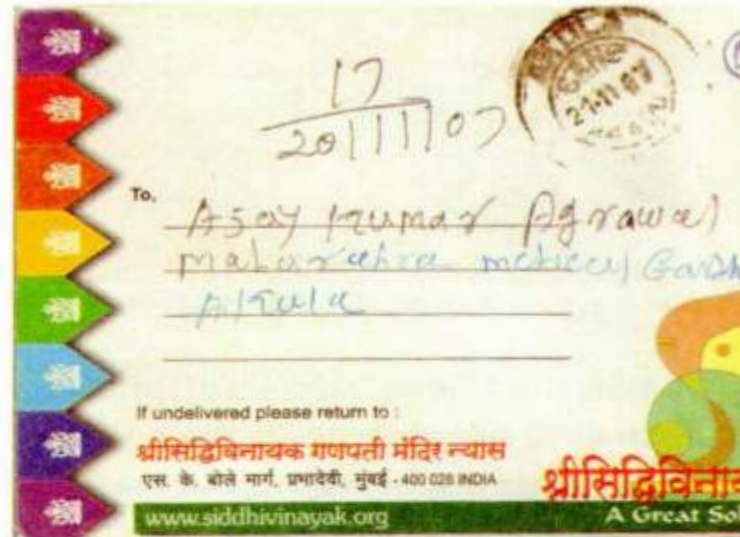 17
20/11/07
21-11-07
To,
Ajay Kumar Agrawal
Maharashtra medical Gandh
Akola
If undelivered please return to :
श्रीसिद्धिविनायक गणपती मंदिर न्यास
एस. के. बोले मार्ग, प्रभादेवी, मुंबई - 400 028 INDIA
श्रीसिद्धिविना
www.siddhivinayak.org
A Great Sol